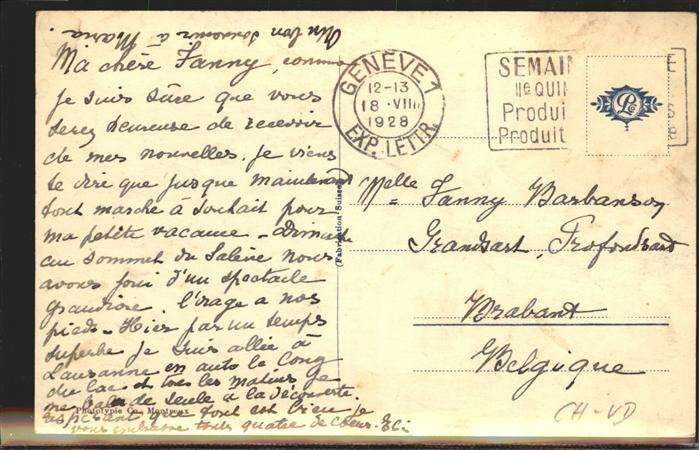 Un bon souvenir à Maria.
Ma chère Fanny, comme
je suis sûre que vous
serez heureuse de recevoir
de mes nouvelles, je viens
te dire que jusque maintenant
tout marche à souhait pour
ma petite vacance - Dimanche
au sommet du Salève nous
avons joui d'un spectacle
grandiose l'orage a nos
pieds - Hier par un temps
superbe je suis allée à
Lausanne en auto le long
du lac et tous les matins je
me de seule à la découverte.
tout est bien je
vous embrasse tous quatre de cœur.
Phototypie Co. Montreux
(Fabrication Suisse)
GENÈVE 1
12-13
18 · VIII
1928
EXP. LETTR.
SEMAI
IIe QUI
Produi
Produit
PL
Melle Fanny Barbanson
Grandsart, Profondsard
Brabant
Belgique
CH-VD